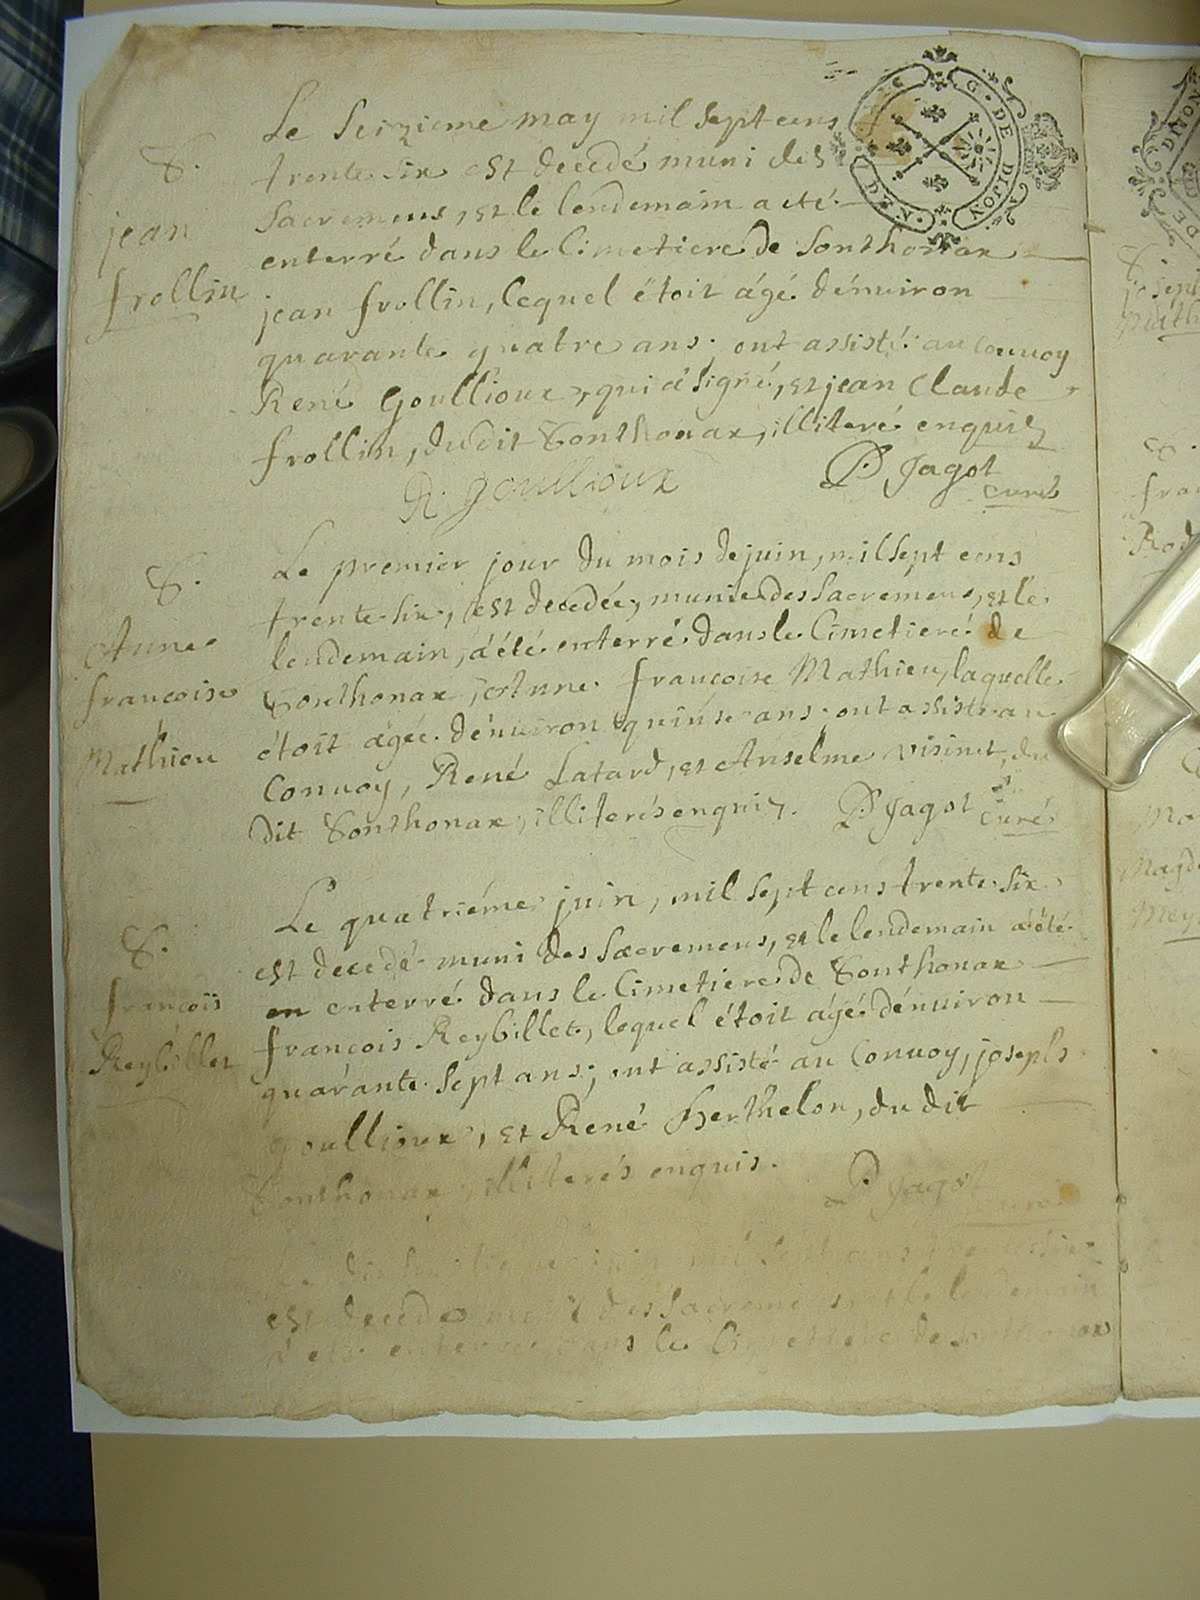 Le seizieme may mil sept cens
trente six est decedé muni des
sacremens, et le lendemain a eté
enterré dans le Cimetiere de Sonthonax
jean frollin, lequel étoit âgé d'énuiron
quarante quatre ans; ont assisté au conuoy
René Goullioux, qui a signé, et jean Claude
frollin, dudit Sonthonax, illiteré enquis
R. goullioux
P. Jagot
curé
S.
jean
frollin
G. DE DIJON
Le premier jour du mois de juin, mil sept cens
trente-six, est decedée, munie des sacremens, et le
lendemain, a été enterré dans le Cimetiere de
Sonthonax, Anne françoise Mathieu, laquelle
étoit âgée d'énuiron quinse ans; ont assisté au
Conuoy, René Latard, et Anselme Visinet, du
dit Sonthonax, illiterés enquis. P. Jagot
curé
S.
Anne
françoise
Mathieu
Le quatriéme juin, mil sept cens trente six
est decedé muni des sacremens, et le lendemain a été
en enterré dans le Cimetiere de Sonthonax
françois Reybillet, lequel étoit âgé d'énuiron
quarante sept ans; ont assisté au Conuoy, joseph
goullioux, et René Berthelon, du dit
Sonthonax, illiterés enquis.
P. Jagot
curé
S.
françois
Reybillet
juin mil sept cens trente six
est decedé muni des sacremens et le lendemain
a eté enterré dans le Cimetiere de Sonthonax